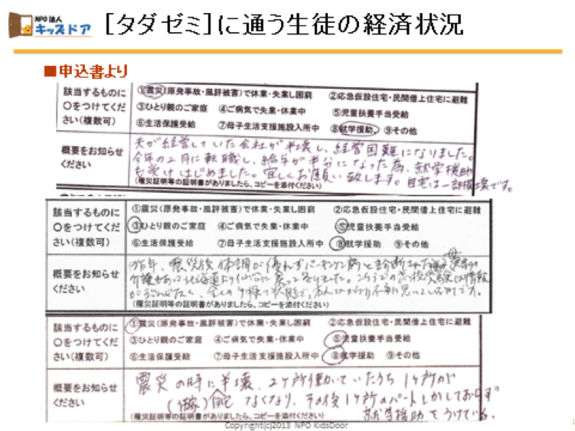 NPO法人
キッズドア
［タダゼミ］に通う生徒の経済状況
■申込書より
該当するものに ①震災（原発事故・風評被害）で休業・失業し困窮 ②応急仮設住宅・民間借上住宅に避難
○をつけてくだ ③ひとり親のご家庭 ④ご病気で失業・休業中 ⑤児童扶養手当受給
さい（複数可） ⑥生活保護受給 ⑦母子生活支援施設入所中 ⑧就学援助 ⑨その他
概要をお知らせ 夫が経営していた会社が半壊し、経営困難になりました。
ください 今年の2月に転職し、給与が半分になった為、就学援助
お受けはじめました。宜しくお願い致します。自宅は一部損壊です。
（罹災証明等の証明書がありましたら、コピーを添付ください）
該当するものに ①震災（原発事故・風評被害）で休業・失業し困窮 ②応急仮設住宅・民間借上住宅に避難
○をつけてくだ ③ひとり親のご家庭 ④ご病気で失業・休業中 ⑤児童扶養手当受給
さい（複数可） ⑥生活保護受給 ⑦母子生活支援施設入所中 ⑧就学援助 ⑨その他
概要をお知らせ 昨年、震災後体調が優れず
ください
（罹災証明等の証明書がありましたら、コピーを添付ください）
該当するものに ①震災（原発事故・風評被害）で休業・失業し困窮 ②応急仮設住宅・民間借上住宅に避難
○をつけてくだ ③ひとり親のご家庭 ④ご病気で失業・休業中 ⑤児童扶養手当受給
さい（複数可） ⑥生活保護受給 ⑦母子生活支援施設入所中 ⑧就学援助 ⑨その他
概要をお知らせ 震災の時に半壊、2ヶ所働いていたうち1ヶ所が
ください なくなり、その後1ヶ所のパートしかしておらず
就学援助をうけている。
（罹災証明等の証明書がありましたら、コピーを添付ください）
Copyright(c)2013 NPO KidsDoor